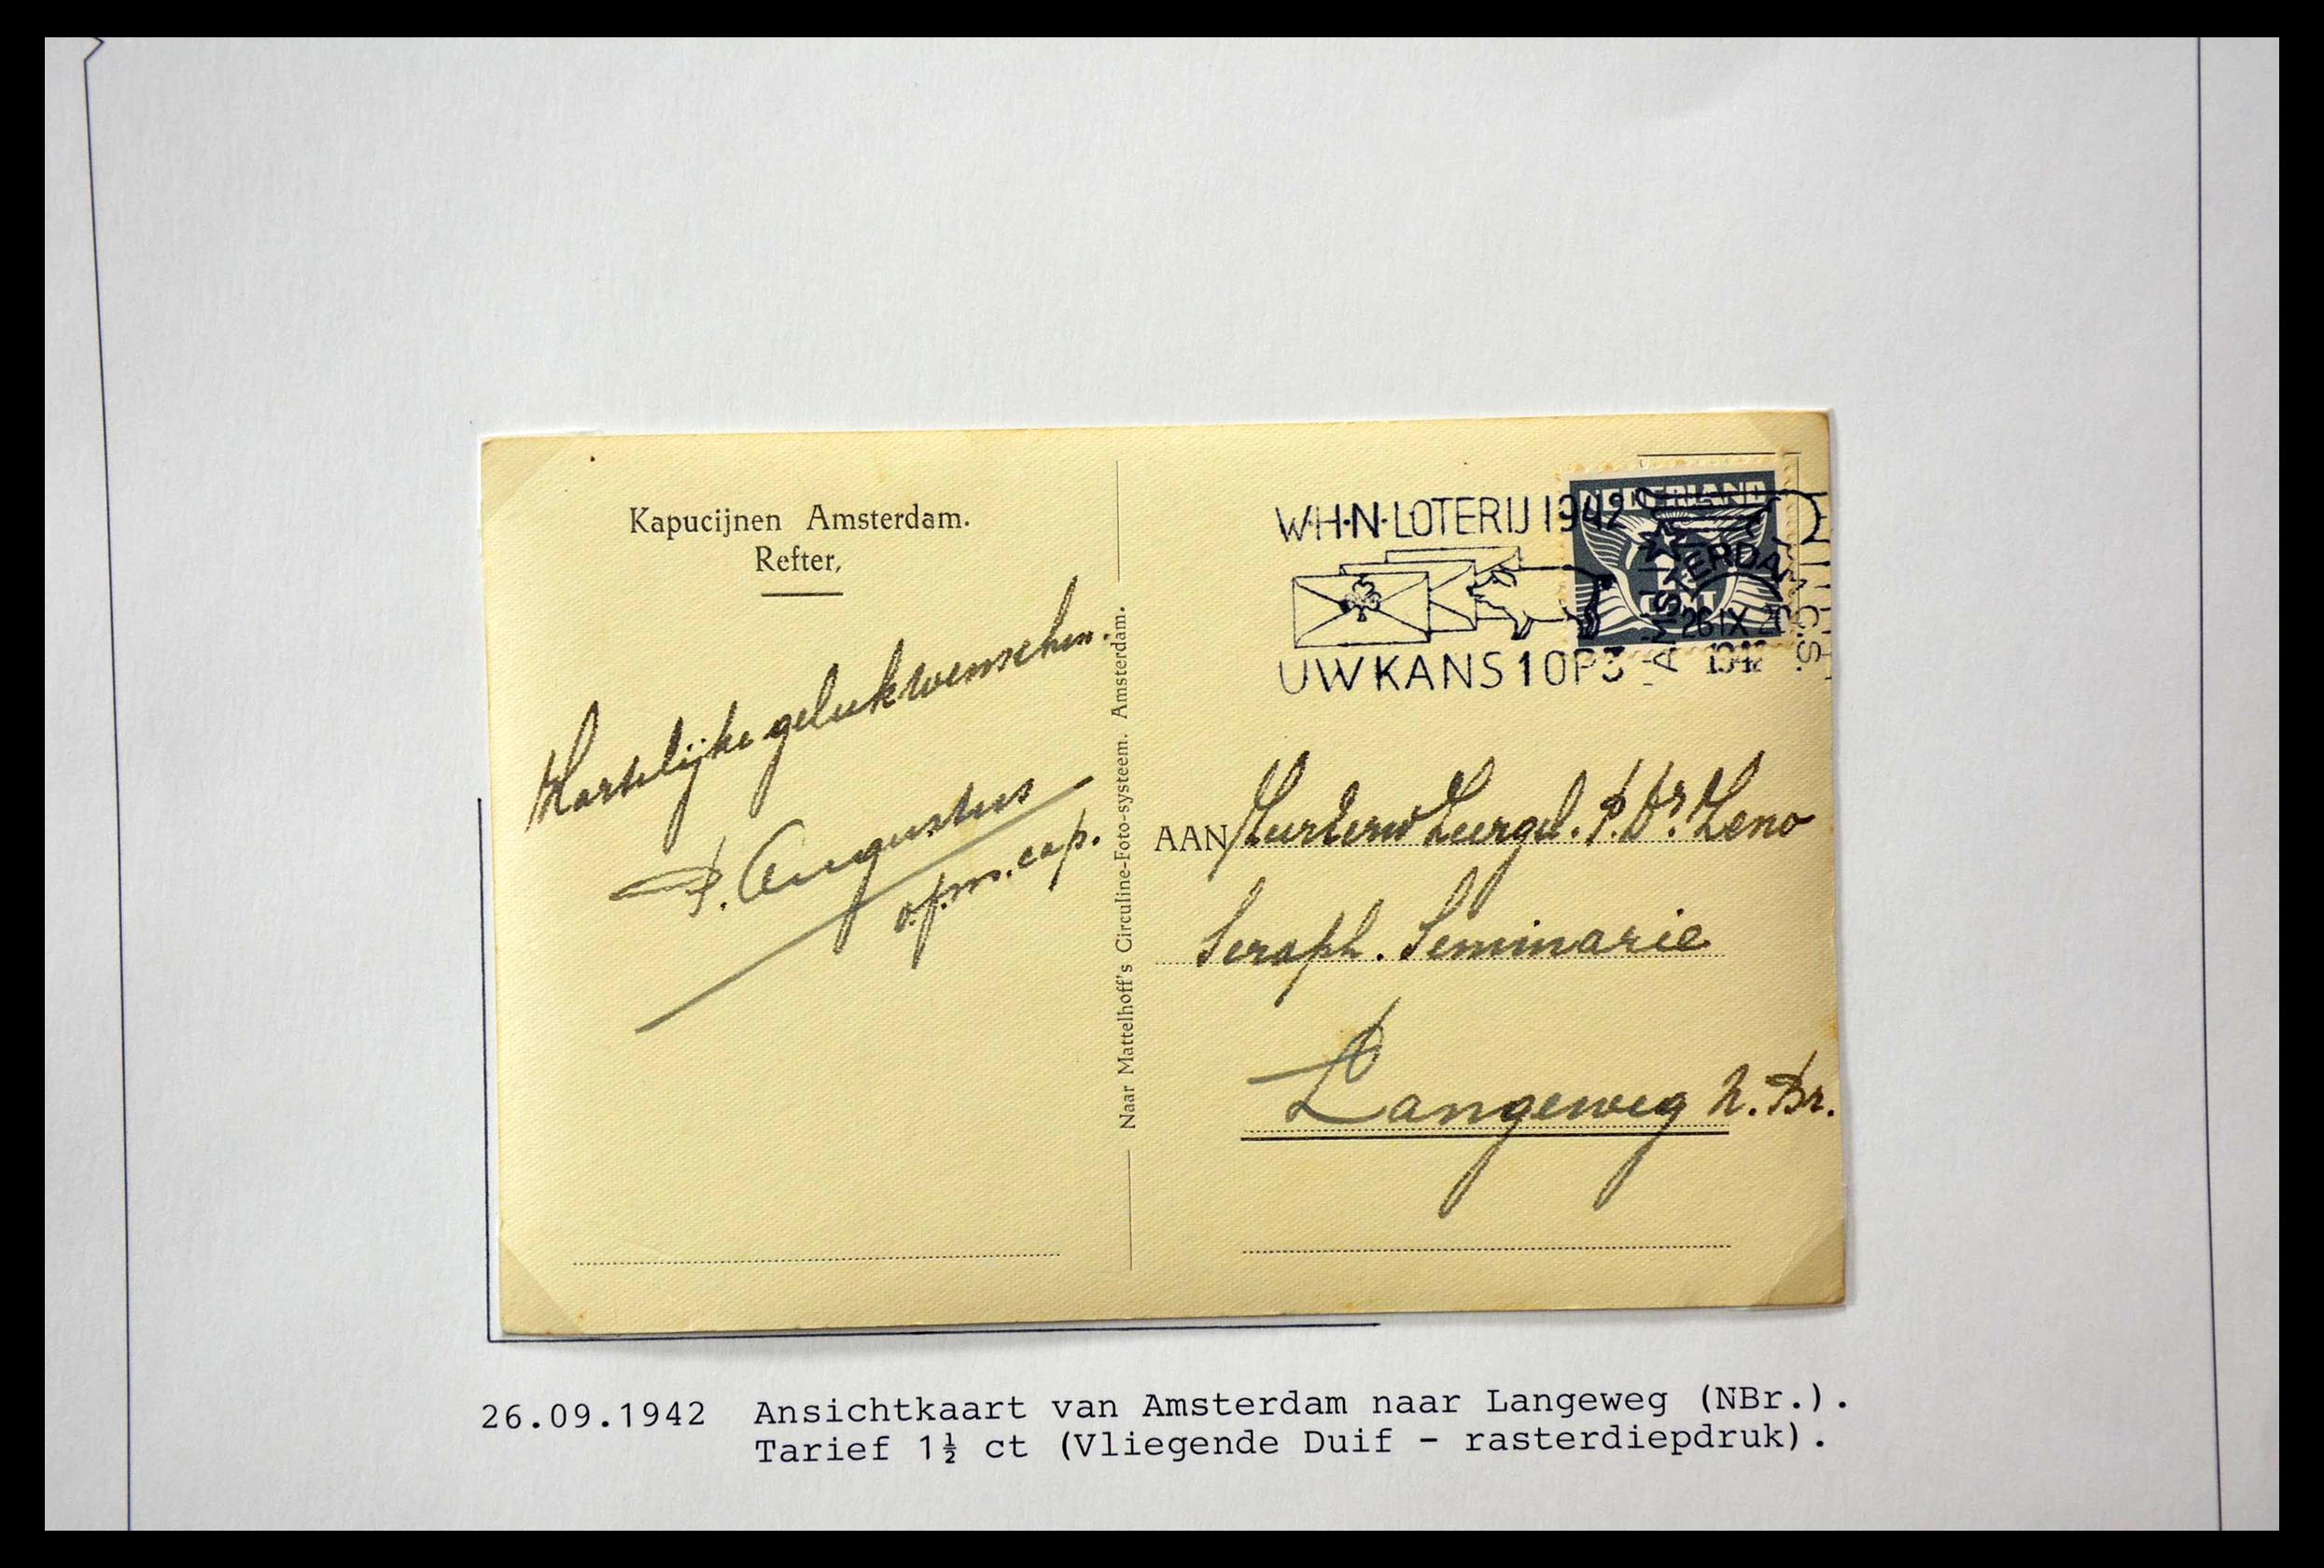 Kapucijnen Amsterdam.
Refter,
Hartelijke gelukwenschen.
P. Augustus
o.f.m. cap.
Naar Mattelhoff's Circuline-Foto-systeem. Amsterdam.
W·H·N·LOTERIJ 1942
UW KANS 1 OP 3
NEDERLAND
CENT
AMSTERDAM C.S.
26 IX 20
1942
AAN Zeereerw Zeergel. P. Dr. Zeno
Seraph. Seminarie
Langeweg N. Br.
26.09.1942 Ansichtkaart van Amsterdam naar Langeweg (NBr.).
Tarief 1½ ct (Vliegende Duif - rasterdiepdruk).